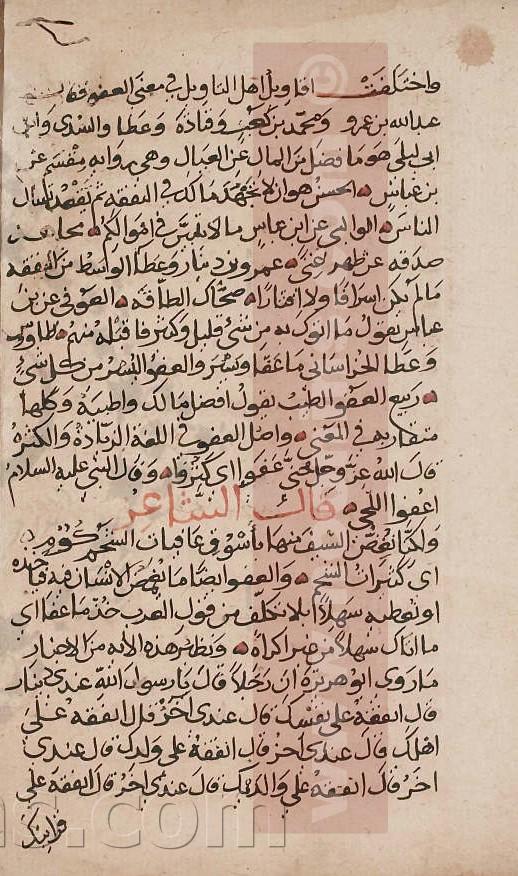 واختلفت اقاويل اهل التاويل في معنى العفو فقال
عبدالله بن عمرو ومحمد بن كعب وقتادة وعطا والسدي وابن
ابي ليلى هو ما فضل من المال عن العيال وهي رواية مقسم عن
بن عباس الحسن هو ان لا تجهد مالك في النفقة ثم تقعد تسأل
الناس الوالبي عن ابن عباس مالا يتبين في اموالكم مجاهد
صدقة عن ظهر غنى عمرو بن دينار وعطا الوسط من النفقة
مالم يكن اسرافا ولا اقتارا ضحاك الطاقة العوفي عن بن
عباس يقول ما اتوك به من شيء قليل وكثير فاقبله منهم طاووس
وعطا الخراساني ما عفا ويسر والعفو اليسر من كل شيء
ربيع العفو الطيب يقول افضل مالك واطيبه وكلها
متقاربة في المعنى واصل العفو في اللغة الزيادة والكثرة
قال الله عز وجل حتى عفوا اي كثروا وقال النبي عليه السلام
اعفوا اللحى قال الشاعر
ولكنا نعض السيف منها باسوق عافيات الشحم كوم
اي كثيرات الشحم والعفو ايضا ما يغمض الانسان فيه فياخذه
او يعطيه سهلا بلا تكلف من قول العرب خذ ما عفا اي
ما اتاك سهلا من غير اكراه ونظير هذه الاية من الاخبار
ما روى ابو هريرة ان رجلا قال يا رسول الله عندي دينار
قال انفقه على نفسك قال عندي آخر قال انفقه على
اهلك قال عندي آخر قال انفقه على ولدك قال عندي
اخر قال انفقه على والديك قال عندي اخر قال انفقه على
قرابتك